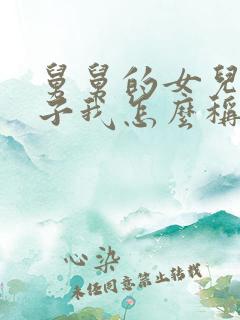 舅舅的女兒
子我怎麼稱
心染
未经同意禁止转载